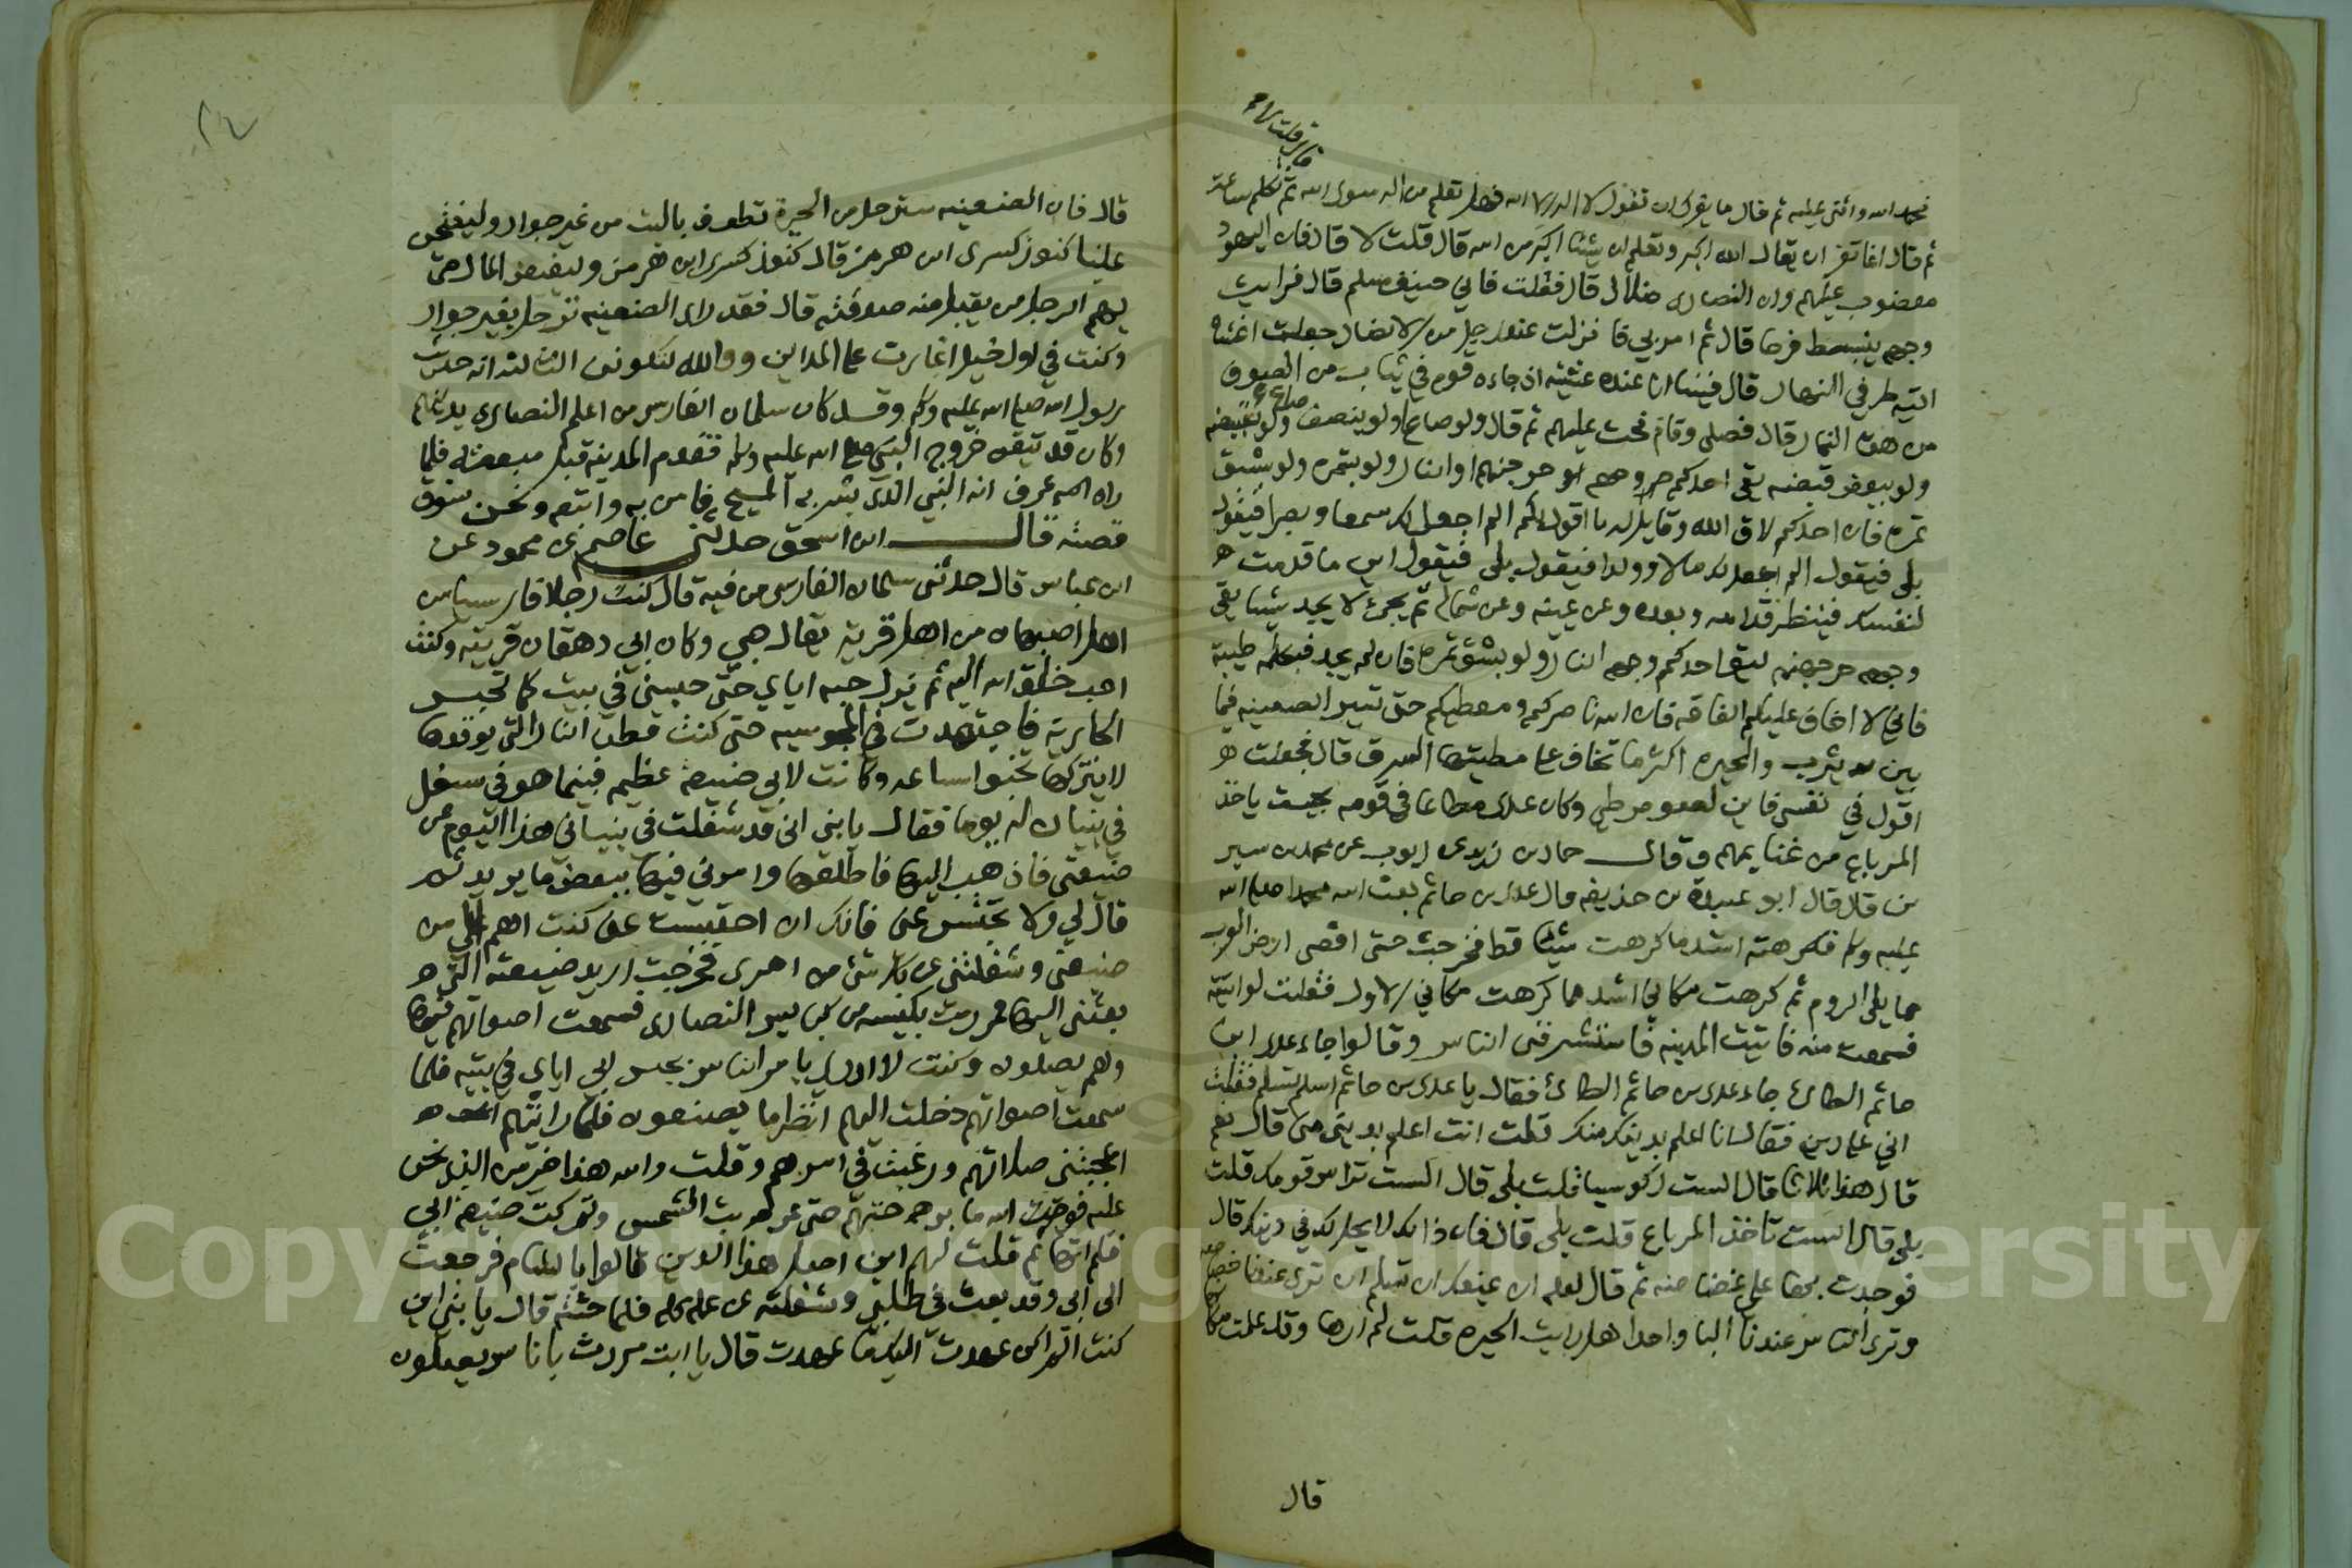 قال قلت لا
فحمد الله واثنى عليه ثم قال ما يفرك ان تقول لا اله الا الله فهل تعلم من اله سوى الله ثم تكلم ساعة
ثم قال انما تفر ان يقال الله اكبر وتعلم ان شيئا اكبر من الله قال قلت لا قال فان اليهود
مغضوب عليهم وان النصارى ضلال قال فقلت فاني حنيف مسلم قال فرايت
وجهه ينبسط فرحا قال ثم امر بي فانزلت عند رجل من الانصار جعلت اغشاه
اتيه طرفي النهار قال فبينا انا عنده عشية اذ جاءه قوم في ثياب من الصوف
من هذه النمار قال فصلى وقام فحث عليهم ثم قال ولو صاع ولو بنصف صاع ولو بقبضة
ولو ببعض قبضة يقي احدكم وجهه حر جهنم او النار ولو بتمرة ولو بشق
تمرة فان احدكم لاق الله وقايل له ما اقول لكم الم اجعل لك سمعا وبصرا فيقول
بلى فيقول الم اجعل لك مالا وولدا فيقول بلى فيقول اين ما قدمت
لنفسك فينظر قدامه وبعده وعن يمينه وعن شماله ثم لا يجد شيئا يقي
وجهه حر جهنم ليق احدكم وجهه النار ولو بشق تمرة فان لم يجد فبكلمة طيبة
فاني لا اخاف عليكم الفاقة فان الله ناصركم ومعطيكم حتى تسير الضعينه فيما
بين يثرب والحيره اكثر ما تخاف على مطيتها السرق قال فجعلت
اقول في نفسي فاين لصوص طي وكان عدي مطاعا في قومه بحيث ياخذ
المرباع من غنايمهم وقال حماد بن زيد عن ايوب عن محمد بن سير
ين قال قال ابو عبيدة بن حذيفه قال عدي بن حاتم بعث الله محمدا صلى الله
عليه وسلم فكرهته اشد ما كرهت شيئا قط فخرجت حتى اقصى ارض العرب
مما يلي الروم ثم كرهت مكاني اشد مما كرهت مكاني الاول فقلت لو اتيته
فسمعت منه فاتيت المدينه فاستشرفني الناس وقالوا جاء عدي ابن
حاتم الطائ جاء عدي بن حاتم الطائ فقال يا عدي بن حاتم اسلم تسلم فقلت
اني على دين فقال انا اعلم بدينك منك قلت انت اعلم بديني مني قال نعم
قال هذا ثلاثا قال الست ركوسيا قلت بلى قال الست تراس قومك قلت
بلى قال الست تاخذ المرباع قلت بلى قال فان ذالك لا يحل لك في دينك قال
فوجدت بها علي غضاضه ثم قال لعله ان يمنعك ان تسلم ان ترى عندنا خصاصه
وترى الناس عندنا البا واحدا هل رايت الحيره قلت لم ارها وقد علمت مكانها
قال
٢٤
قال فان الضعينه سترحل من الحيرة تطوف بالبيت من غير جوار وليفتحن
علينا كنوز كسرى ابن هرمز قال كنوز كسرى ابن هرمز وليفيض المال حتى
يهم الرجل من يقبل منه صدقته قال فقد راى الضعينه ترحل بغير جوار
وكنت في اول خيل اغارت على المداين ووالله لتكونن الثالثه انه حديث
رسول الله صلى الله عليه وسلم وقد كان سلمان الفارسي من اعلم النصارى بدينهم
وكان قد تيقن خروج النبي صلى الله عليه وسلم فقدم المدينه قبل مبعثه فلما
راه عرف انه النبي الذي بشر به المسيح فامن به واتبعه ونحن نسوق
قصته قال ابن اسحق حدثني عاصم بن محمود عن
ابن عباس قال حدثني سلمان الفارسي من فيه قال كنت رجلا فارسيا من
اهل اصبهان من اهل قرية يقال جي وكان ابي دهقان قريته وكنت
احب خلق الله اليه ثم يزل حبه اياي حتى حبسني في بيت كما تحبس
الجارية فاجتهدت في المجوسيه حتى كنت قطن النار التي يوقدها
لا يتركها تخبوا ساعه وكانت لابي ضيعة عظيم فبينما هو في شغل
في بنيان له يوما فقال يا بني اني قد شغلت في بنياني هذا اليوم عن
ضيعتي فاذهب اليها فاطلعها وامرني فيها ببعض ما يريد ثم
قال لي ولا تحتبس عني فانك ان احتبست عني كنت اهم الي من
ضيعتي وشغلتني عن كل شئ من امري فخرجت اريد ضيعته التي
بعثني اليها فمررت بكنيسه من كنايس النصارى فسمعت اصواتهم فيها
وهم يصلون وكنت لا ادري يا مر الناس بحبس ابي اياي في بيته فلما
سمعت اصواتهم دخلت اليهم انظر ما يصنعون فلما رايتهم
اعجبتني صلاتهم ورغبت في امرهم وقلت والله هذا خير من الذي نحن
عليه فوالله ما برحتهم حتى غربت الشمس وتركت ضيعة ابي
فلم اتها ثم قلت لهم اين اصل هذا الدين قالوا بالشام فرجعت
الى ابي وقد بعث في طلبي وشغلته عن عمله كله فلما جئته قال يا بني اين
كنت الم اكن عهدت اليك ما عهدت قال يا ابت مررت بانا س يصلون